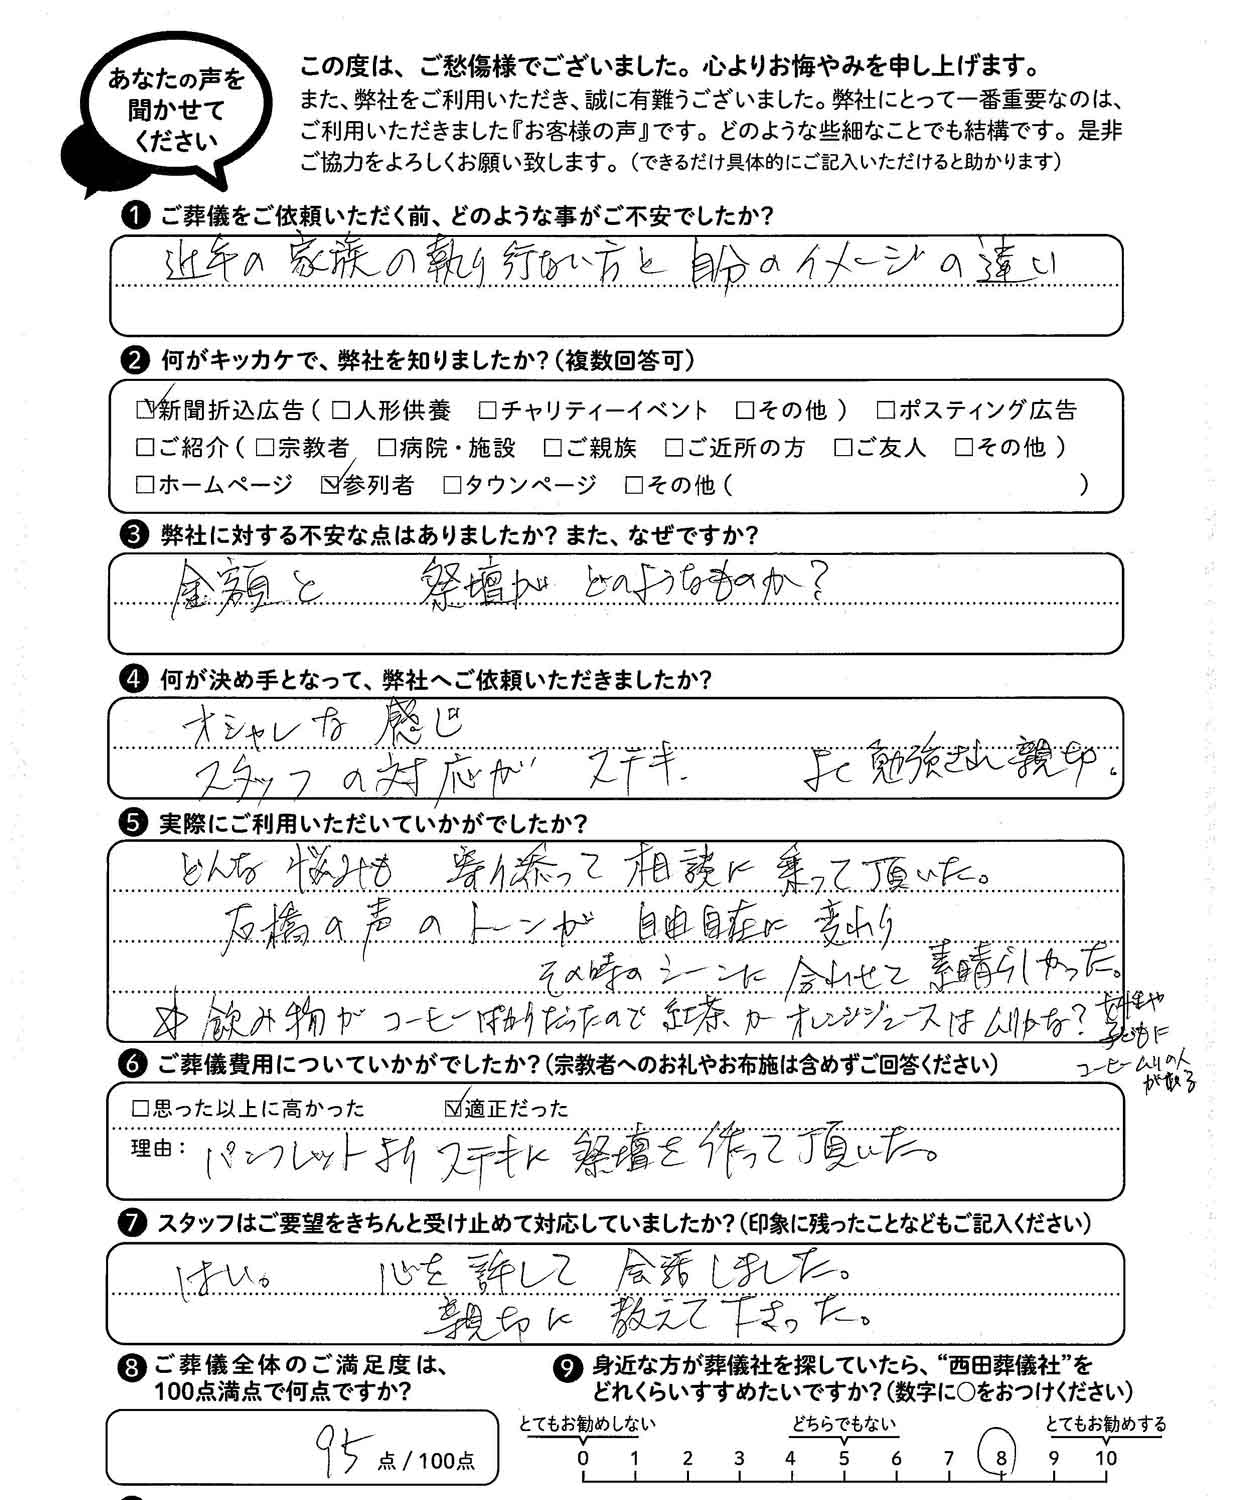 あなたの声を
聞かせて
ください
この度は、ご愁傷様でございました。心よりお悔やみを申し上げます。
また、弊社をご利用いただき、誠に有難うございました。弊社にとって一番重要なのは、
ご利用いただきました『お客様の声』です。どのような些細なことでも結構です。是非
ご協力をよろしくお願い致します。（できるだけ具体的にご記入いただけると助かります）
❶ ご葬儀をご依頼いただく前、どのような事がご不安でしたか？
近年の 家族の執り行ない方と 自分のイメージの違い
❷ 何がキッカケで、弊社を知りましたか？（複数回答可）
☑新聞折込広告（ □人形供養 □チャリティーイベント □その他 ） □ポスティング広告
□ご紹介（ □宗教者 □病院・施設 □ご親族 □ご近所の方 □ご友人 □その他 ）
□ホームページ ☑参列者 □タウンページ □その他（ ）
❸ 弊社に対する不安な点はありましたか？また、なぜですか？
金額と 祭壇が どのようなものか？
❹ 何が決め手となって、弊社へご依頼いただきましたか？
オシャレな 感じ
スタッフの対応が ステキ. よく勉強され親切。
❺ 実際にご利用いただいていかがでしたか？
どんな 悩みも 寄り添って 相談に 乗って頂いた。
石橋の声のトーンが 自由自在に 変わり
その時のシーンに 合わせて 素晴らしかった。
飲み物が コーヒーばかりだったので 紅茶 か オレンジジュースは ムリかな？ 女性や
子どもに
コーヒームリの人
が
❻ ご葬儀費用についていかがでしたか？（宗教者へのお礼やお布施は含めずご回答ください）
□思った以上に高かった ☑適正だった
理由： パンフレットより ステキに 祭壇を 作って頂いた。
❼ スタッフはご要望をきちんと受け止めて対応していましたか？（印象に残ったことなどもご記入ください）
はい。 心を許して 会話しました。
親切に 教えて下さった。
❽ ご葬儀全体のご満足度は、
100点満点で何点ですか？
95 点 / 100点
❾ 身近な方が葬儀社を探していたら、“西田葬儀社”を
どれくらいすすめたいですか？（数字に○をおつけください）
とてもお勧めしない どちらでもない とてもお勧めする
0 1 2 3 4 5 6 7 8 9 10